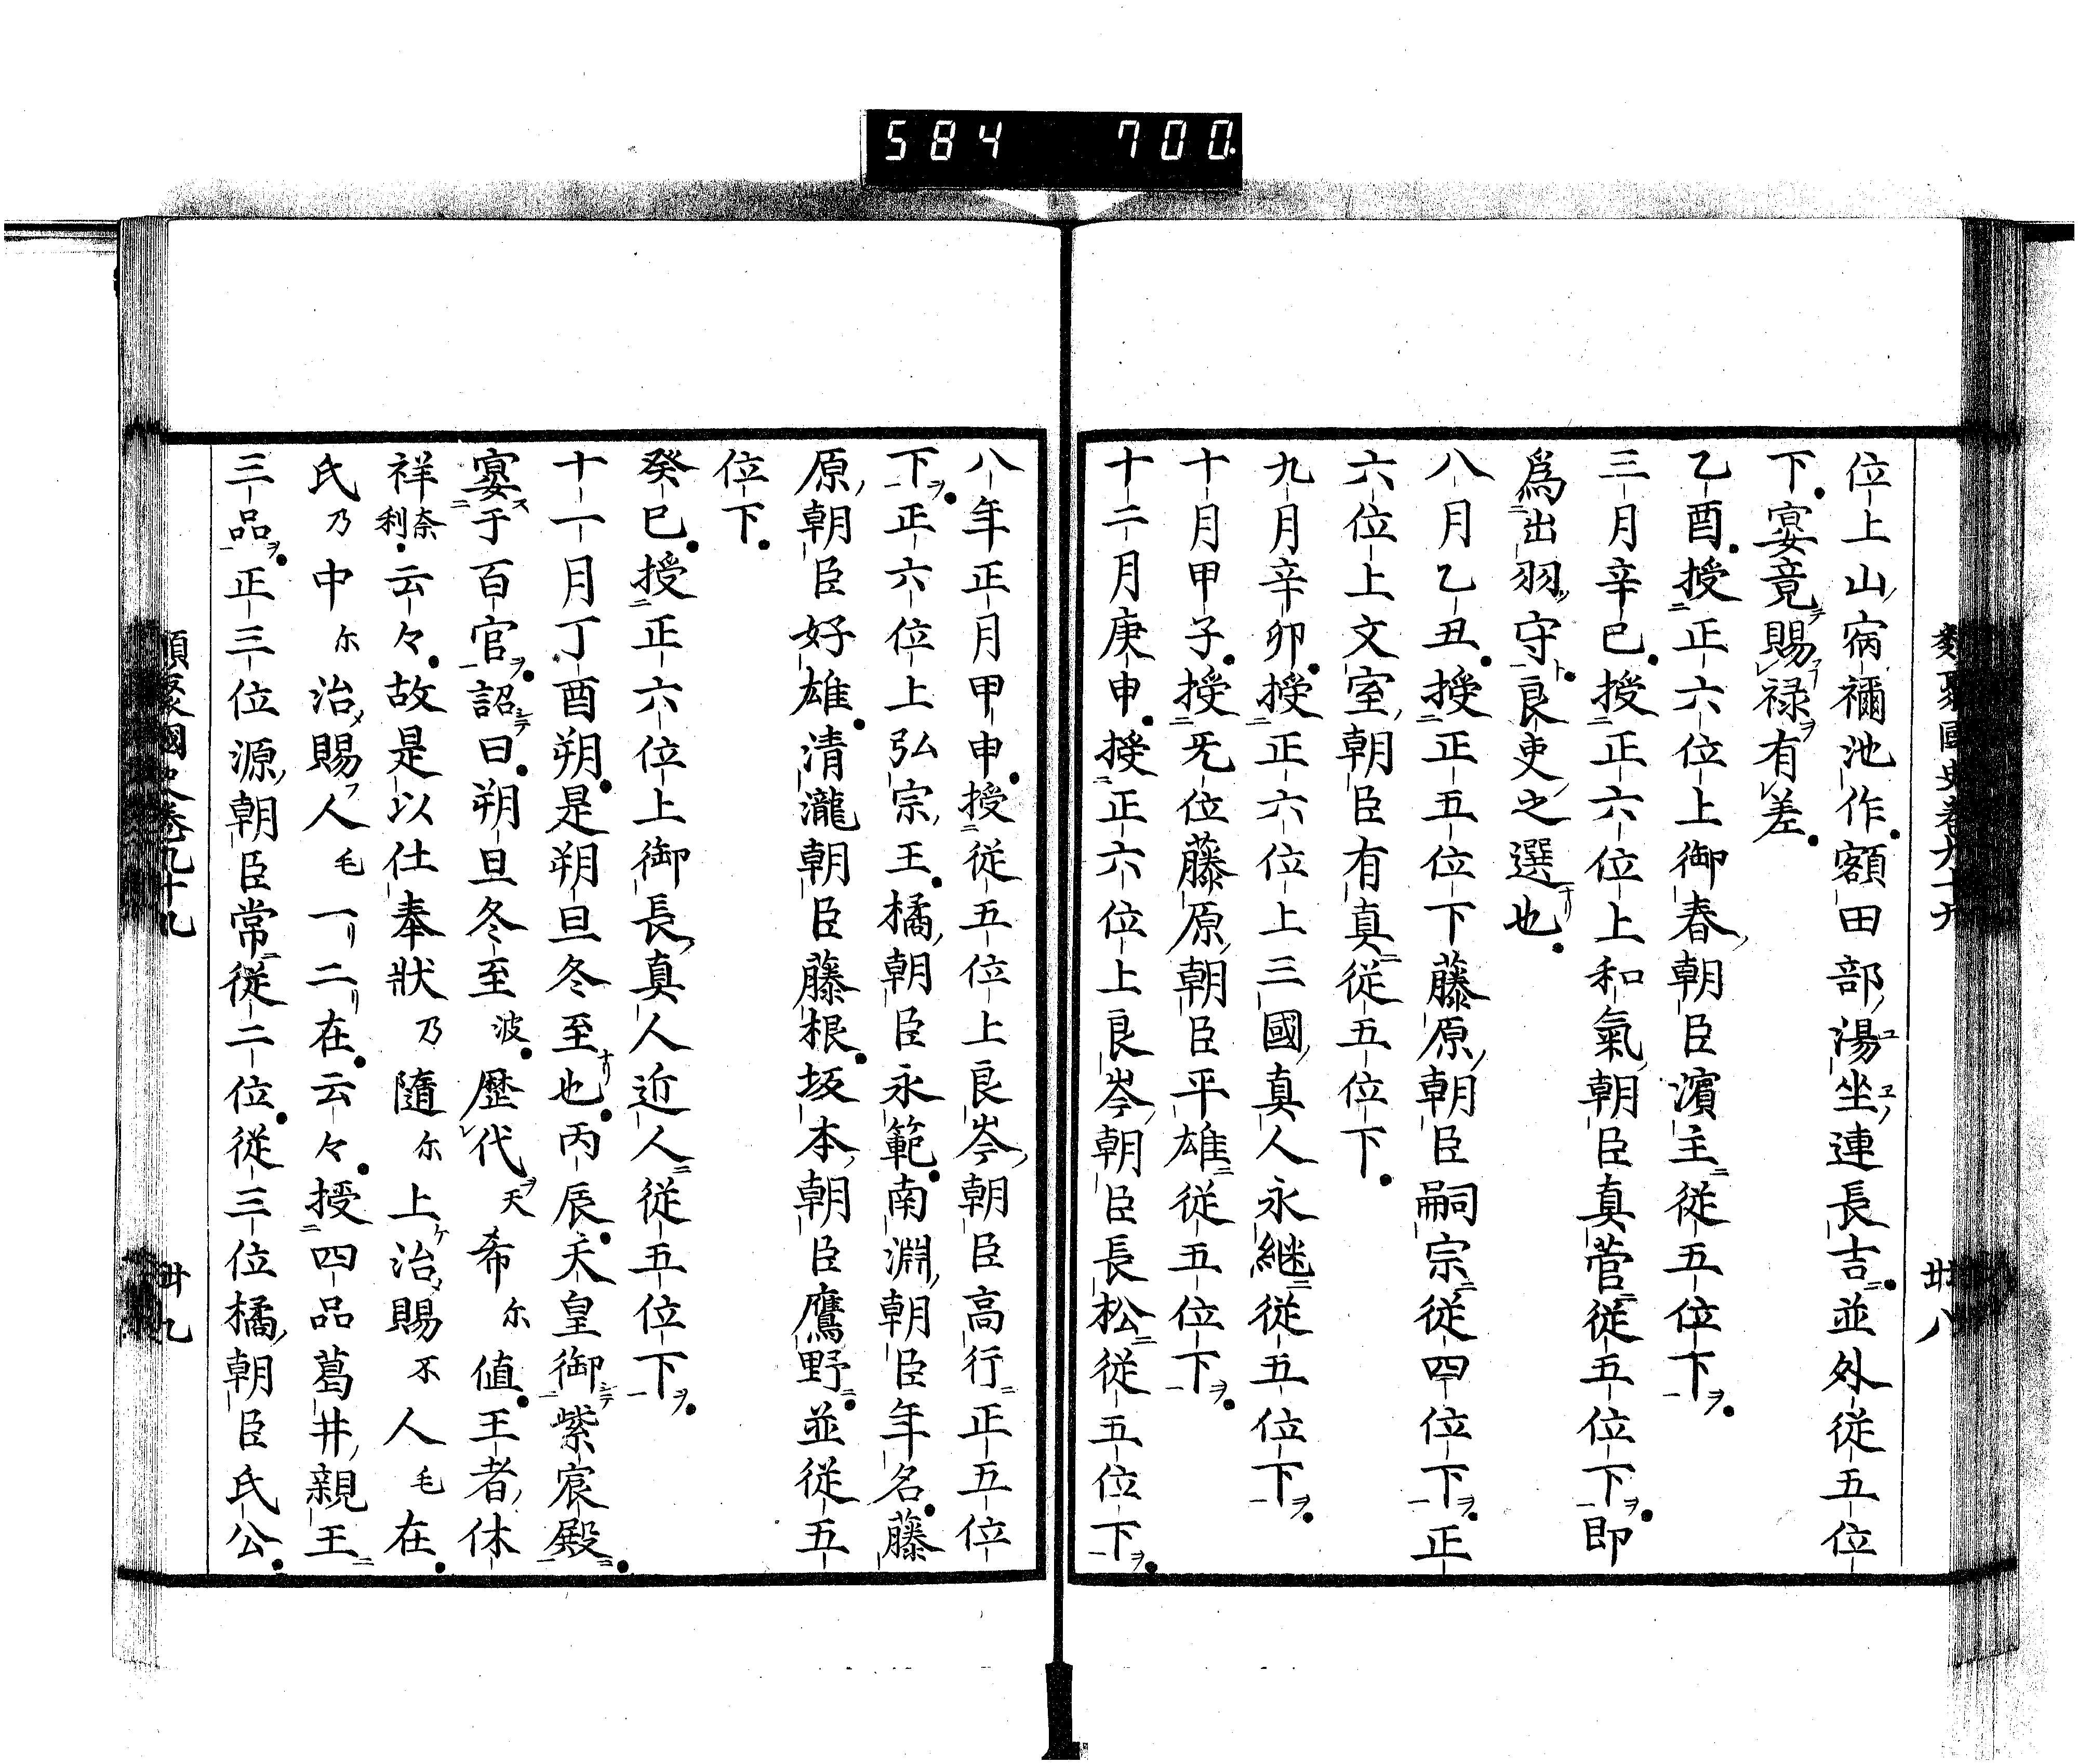 584 700
類聚國史卷九十九 卅八
位上山宿禰池作額田部湯坐連長吉並外從五位
下宴竟賜禄有差
乙酉授正六位上御春朝臣濱主從五位下
三月辛巳授正六位上和氣朝臣真菅從五位下即
為出羽守良吏之選也
八月乙丑授正五位下藤原朝臣嗣宗從四位下正
六位上文室朝臣有真從五位下
九月辛卯授正六位上三國真人永継從五位下
十月甲子授无位藤原朝臣平雄從五位下
十二月庚申授正六位上良岑朝臣長松從五位下
八年正月甲申授從五位上良岑朝臣高行正五位
下正六位上弘宗王橘朝臣永範南淵朝臣年名藤
原朝臣好雄清瀧朝臣藤根坂本朝臣鷹野並從五
位下
癸巳授正六位上御長真人近人從五位下
十一月丁酉朔是朔旦冬至也丙辰天皇御紫宸殿
宴于百官詔曰朔旦冬至波歷代天希尓値王者休
祥奈利云々故是以仕奉狀乃隨尓上治賜不人毛在
氏乃中尓治賜人毛一二在云々授四品葛井親王
三品正三位源朝臣常從二位從三位橘朝臣氏公
類聚國史卷九十九 卅九